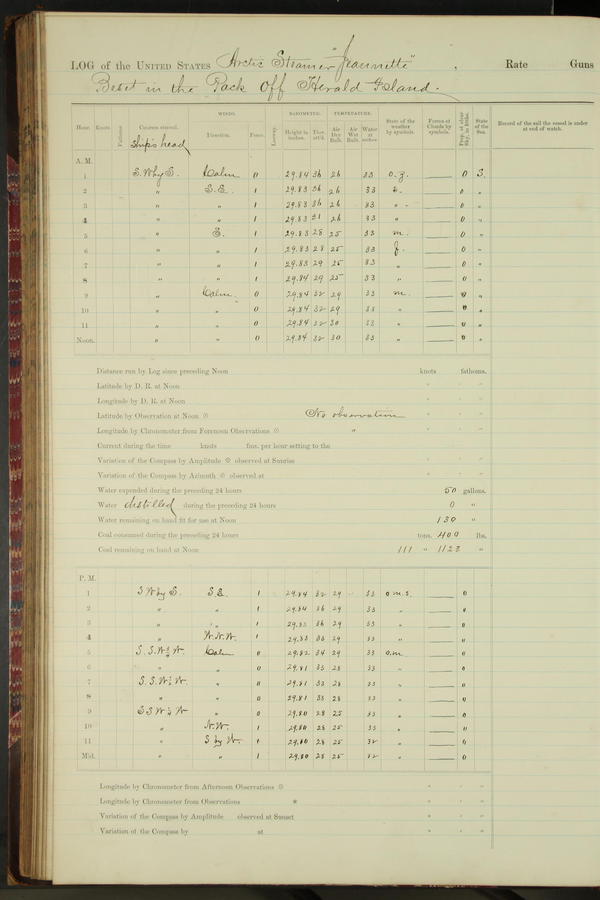 LOG of the UNITED STATES Arctic Steamer "Jeannette", Rate Guns
Beset in the Pack Off Herald Island.
WINDS. BAROMETER. TEMPERATURE.
Hour. Knots. Fathoms. Courses steered. Direction. Force. Leeway. Height in inches. Ther. att'd. Air Dry Bulb. Air Wet Bulb. Water at surface. State of the weather by symbols. Forms of Clouds by symbols. Prop. of clear Sky, in tenths. State of the Sea. Record of the sail the vessel is under at end of watch.
Ships head
A. M.
1 S. W by S. Calm 0 29.84 36 26 33 o. g. 0 S.
2 " S. E. 1 29.83 36 26 33 0 "
3 " " 1 29.83 36 26 33 " 0 "
4 " " 1 29.83 31 26 33 " 0 "
5 " E. 1 29.83 28 25 33 m. 0 "
6 " " 1 29.83 28 25 33 0 "
7 " " 1 29.83 29 25 33 " 0 "
8 " " 1 29.84 29 25 33 " 0 "
9 " Calm. 0 29.84 32 29 33 m. 0 "
10 " " 0 29.84 32 29 33 " 0 "
11 " " 0 29.84 32 30 33 " 0 "
Noon. " " 0 29.84 32 30 33 " 0 "
Distance run by Log since preceding Noon knots fathoms.
Latitude by D. R. at Noon ° ' "
Longitude by D. R. at Noon ° ' "
Latitude by Observation at Noon ☉ No observation ° ' "
Longitude by Chronometer from Forenoon Observations ☉ " ° ' "
Current during the time knots fms. per hour setting to the
Variation of the Compass by Amplitude ☉ observed at Sunrise ° ' "
Variation of the Compass by Azimuth ☉ observed at ° ' "
Water expended during the preceding 24 hours 50 gallons.
Water distilled during the preceding 24 hours 0 "
Water remaining on hand fit for use at Noon 130 "
Coal consumed during the preceding 24 hours tons. 400 lbs.
Coal remaining on hand at Noon 111 " 1123 "
P. M.
1 S W by S. S. E. 1 29.84 32 29 33 o. m. s. 0
2 " " 1 29.84 36 29 33 " 0
3 " " 1 29.83 36 29 33 " 0
4 " W. N. W. 1 29.83 35 29 33 " 0
5 S. S. W ½ W. Calm 0 29.82 34 29 33 o.m. 0
6 " " 0 29.81 33 28 33 " 0
7 S. S. W ½ W. " 0 29.81 32 28 33 " 0
8 " " 0 29.81 33 28 33 " 0
9 S S W ½ W " 0 29.80 28 25 33 " 0
10 " N. W. 1 29.80 28 25 33 " 0
11 " S by W. 1 29.80 28 25 32 " 0
Mid. " " 1 29.80 28 25 32 " 0
Longitude by Chronometer from Afternoon Observations ☉ ° ' "
Longitude by Chronometer from Observations * ° ' "
Variation of the Compass by Amplitude observed at Sunset ° ' "
Variation of the Compass by at ° ' "